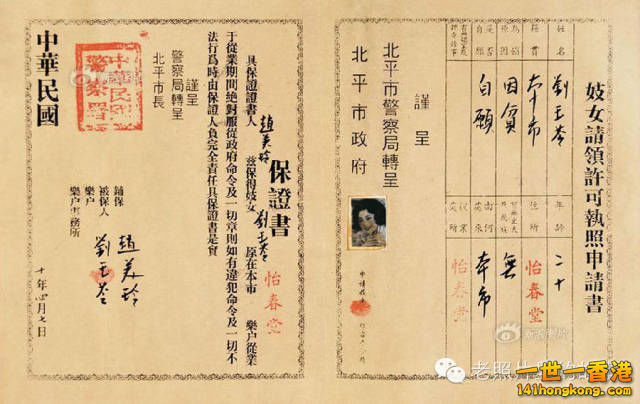 妓女請領許可執照申請書
姓名 劉玉苓 年齡 二十
籍貫 本市 住所 怡春堂
因貧 無
自願 本市
怡春堂
謹呈
北平市警察局轉呈
北平市政府
保證書
具保證書人 趙美玲 茲保得妓女 劉玉苓 原在本市 怡春堂 樂户從業
于從業期間絶對服從政府命令及一切章則如有違犯命令及一切不
法行爲時由保證人負完全責任具保證書是實
謹呈
警察局轉呈
北平市長
鋪保
被保人 劉玉苓
樂户 趙美玲
樂户事務所
十年四月七日
中華民國
老照片
一世一香港
141hongkong.com